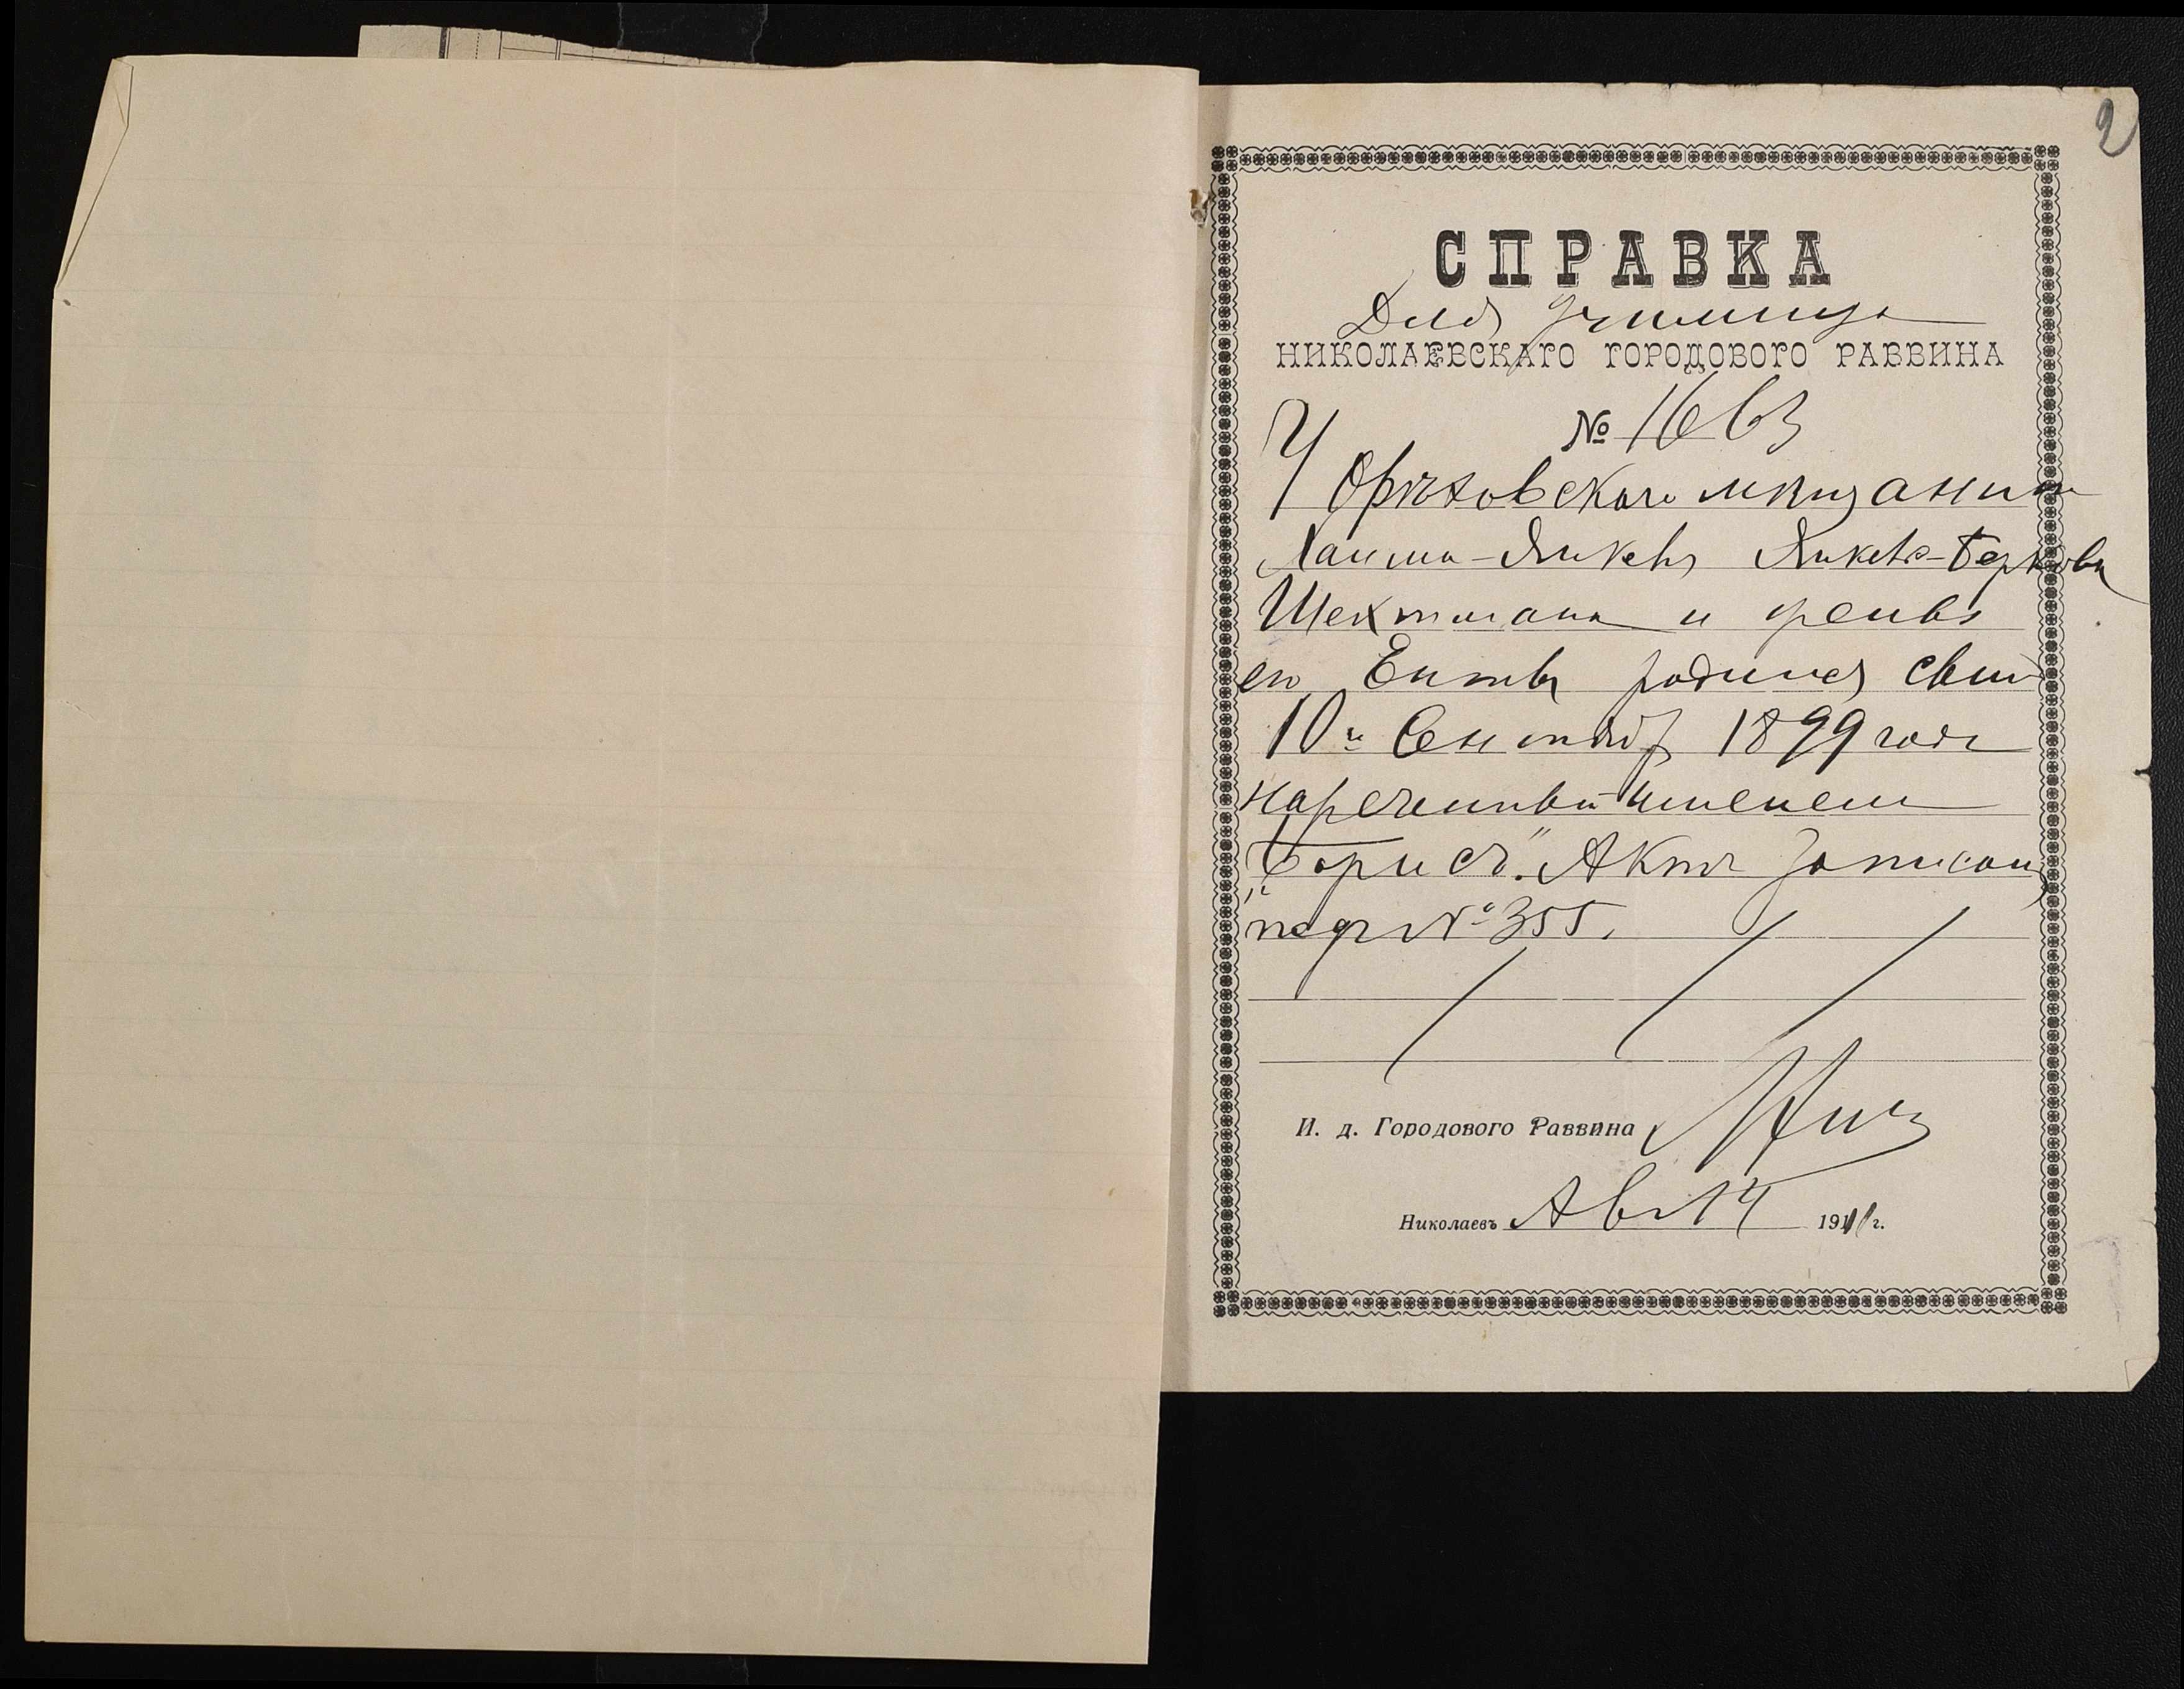 2
СПРАВКА
Для училища
НИКОЛАЕВСКАГО ГОРОДОВОГО РАВВИНА
№ 1663
У Орѣховскаго мѣщанина
Хаима-Янкеля Янкель-Беркова
Шехтмана и жены
его Енты родился сынъ
10го Сентября 1899 года
нареченный именем
„Борисъ". Актъ записан
подъ № 355.
И. д. Городового Раввина
Николаевъ Авг 14 1911 г.